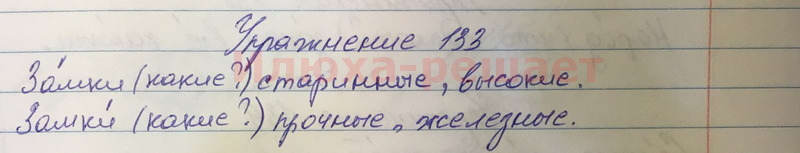 Упражнение 133
За́мки (какие?) старинные, высокие.
Замки́ (какие?) прочные, железные.
Илюха-решает